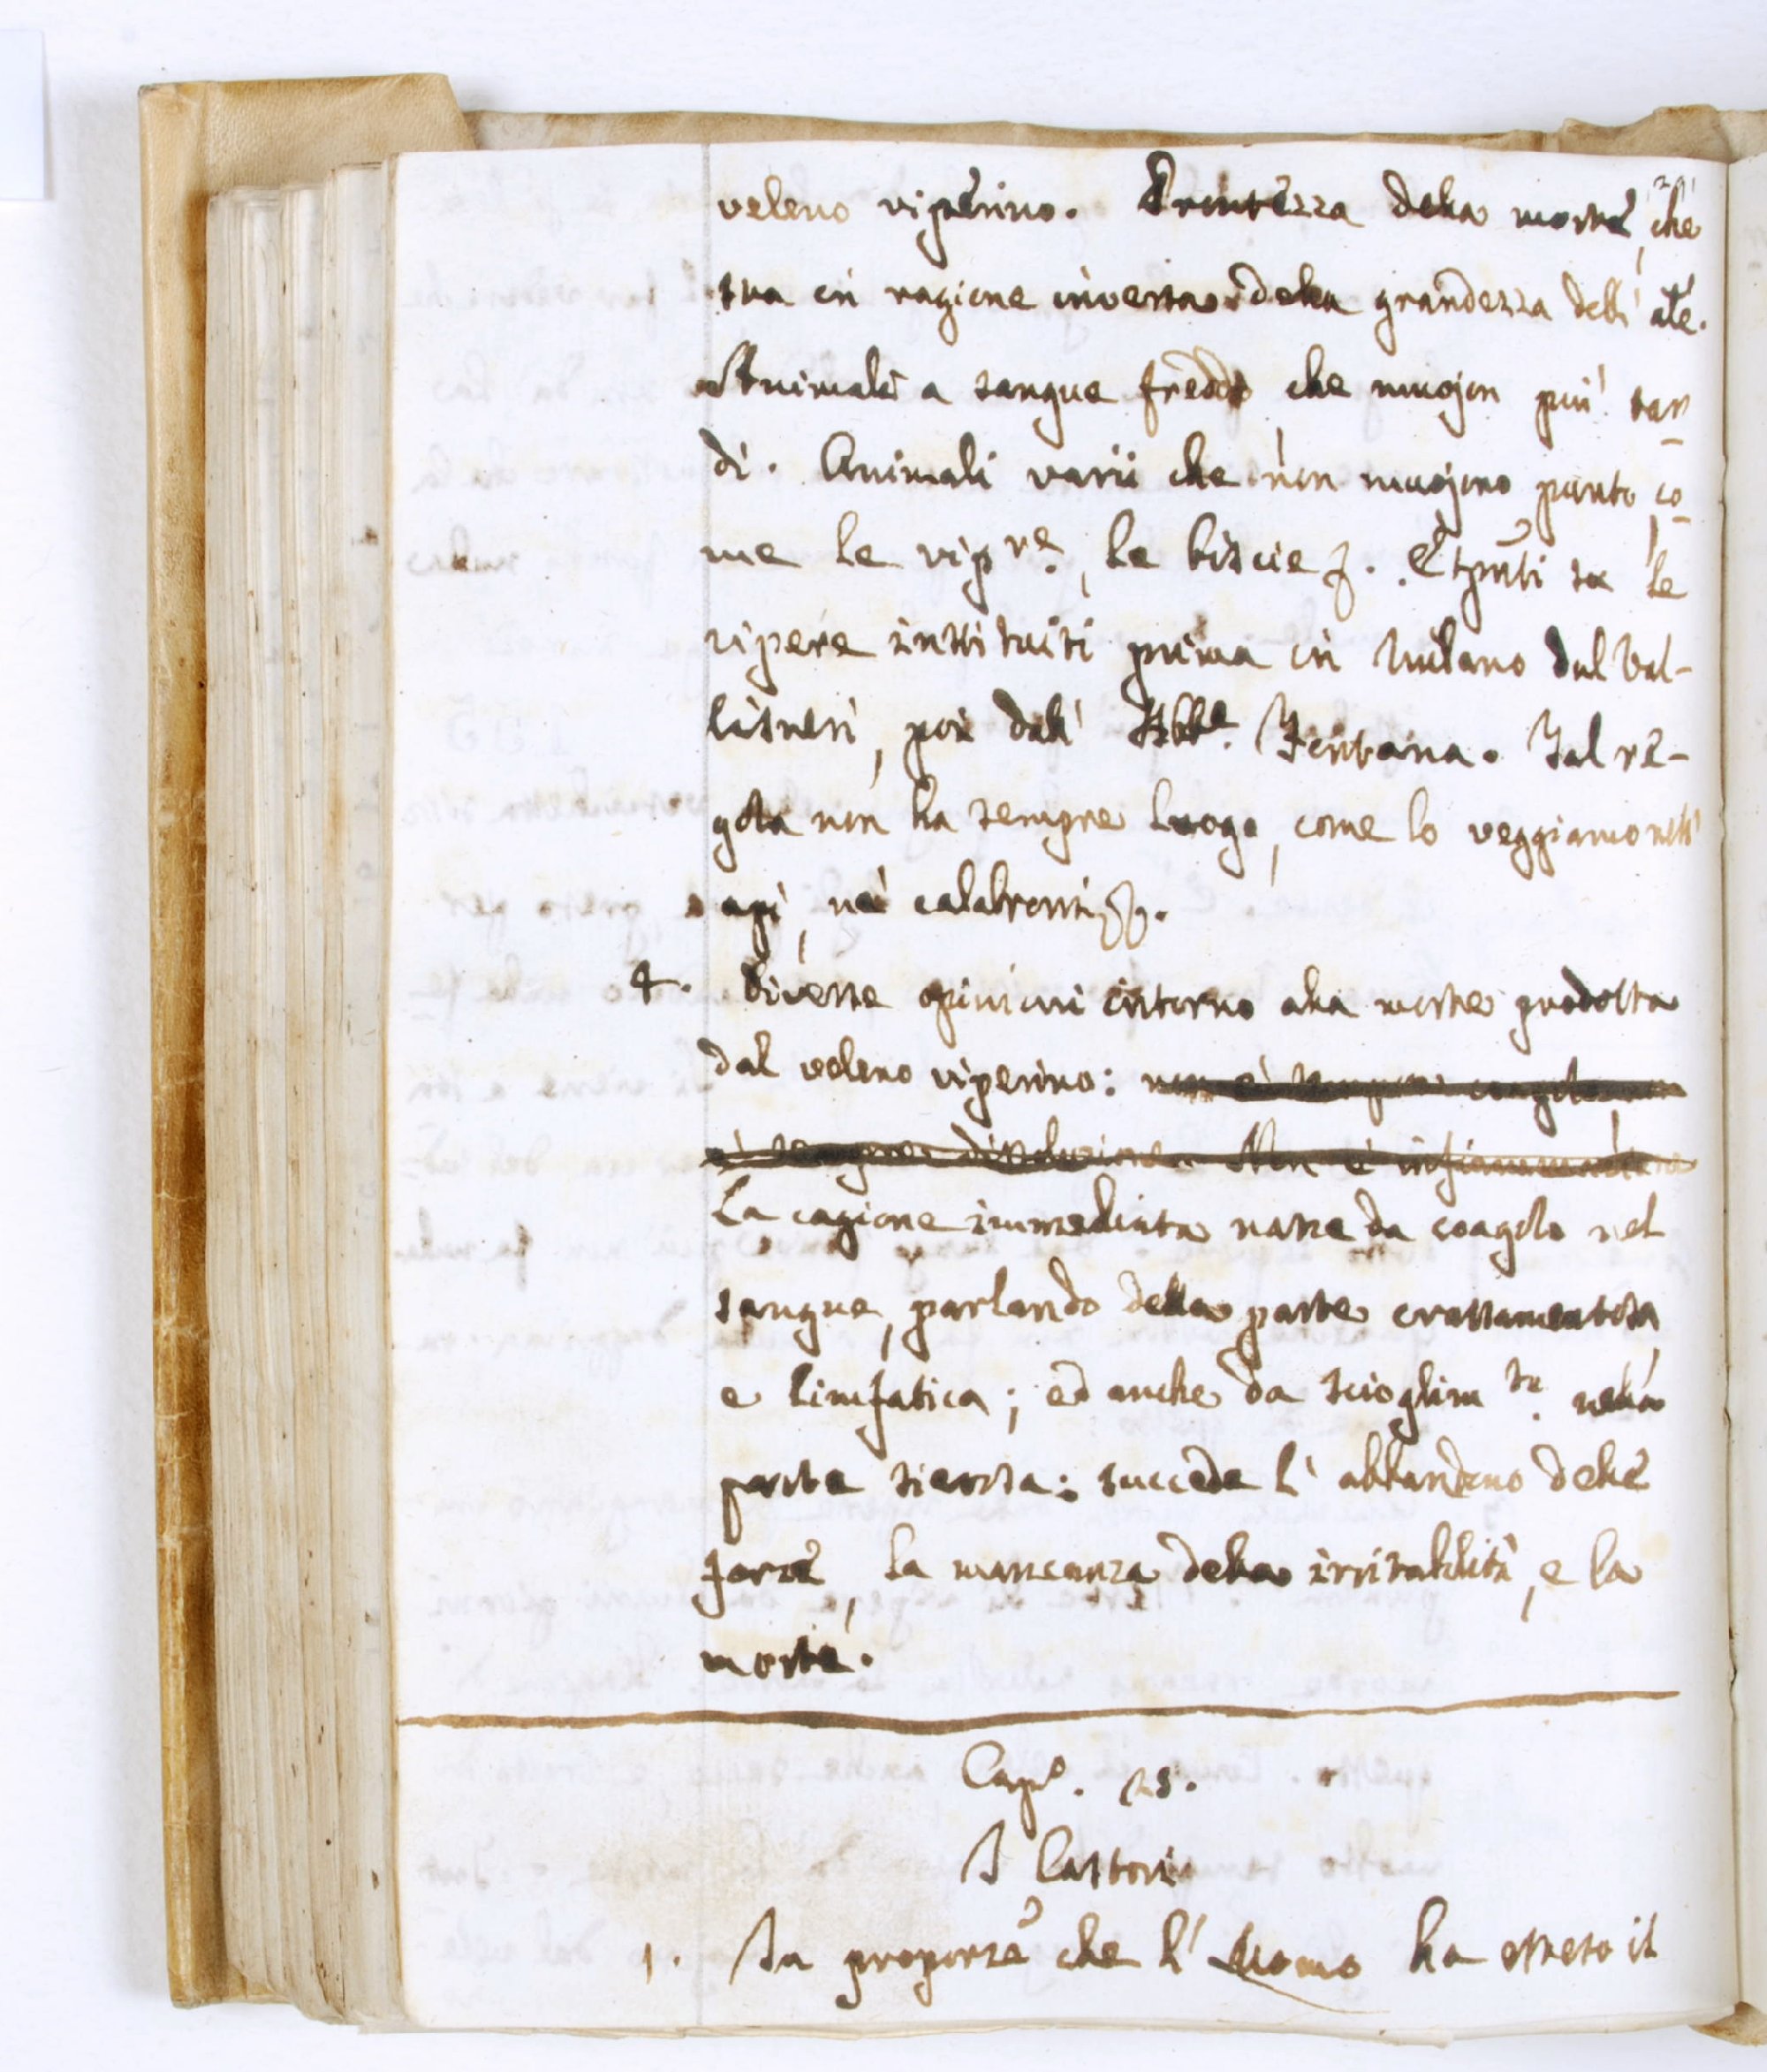 veleno viperino. Prontezza della morte, che
sta in ragione inversa della grandezza dell'
Animali a sangue freddo che muojon più tar
di. Animali varii che non muojono punto, co
me le vip.re, le biscie &. Esp.nti su le
vipere instituiti prima in Milano dal Val-
lisneri, poi dall' Abb.e Fontana. Tal re-
gola non ha sempre luogo, come lo veggiamo nell'
api, ne' calabroni &&.
4. Diverse opinioni intorno alla morte prodotta
dal veleno viperino: non è sempre coagulo, non
è sempre dissoluzione. Non è infiammazione
La cagione immediata nasce da coagolo nel
sangue, parlando della parte crassamentosa,
e linfatica; ed anche da scioglim.to nella
parte sierosa: succede l' abbandono delle
forze, la mancanza della irritabilità, e la
morte.
Cap.o. 25.
I Castori
1. In proporz.e che l' Uomo ha esteso il